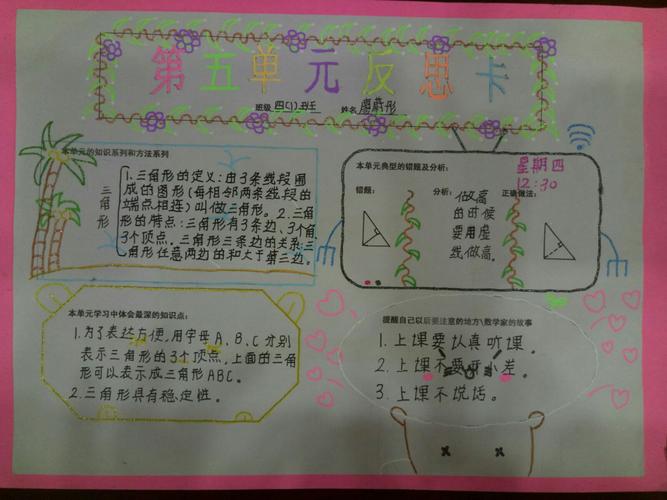 第五单元反思卡
班级 四(1)班 姓名
本单元的知识系列和方法系列
三角形
1.三角形的定义:由3条线段围
成的图形(每相邻两条线段的
端点相连)叫做三角形。2.三角
形的特点:三角形有3条边、3个角、
3个顶点。三角形三条边的关系:三
角形任意两边的和大于第三边。
本单元典型的错题及分析:
星期四
12:30
错题: 分析: 正确做法:
做高
的时候
要用虚
线做高。
本单元学习中体会最深的知识点:
1.为了表达方便,用字母A、B、C分别
表示三角形的3个顶点,上面的三角
形可以表示成三角形ABC。
2.三角形具有稳定性。
提醒自己以后要注意的地方\数学家的故事
1.上课要认真听课。
2.上课不要开小差。
3.上课不说话。